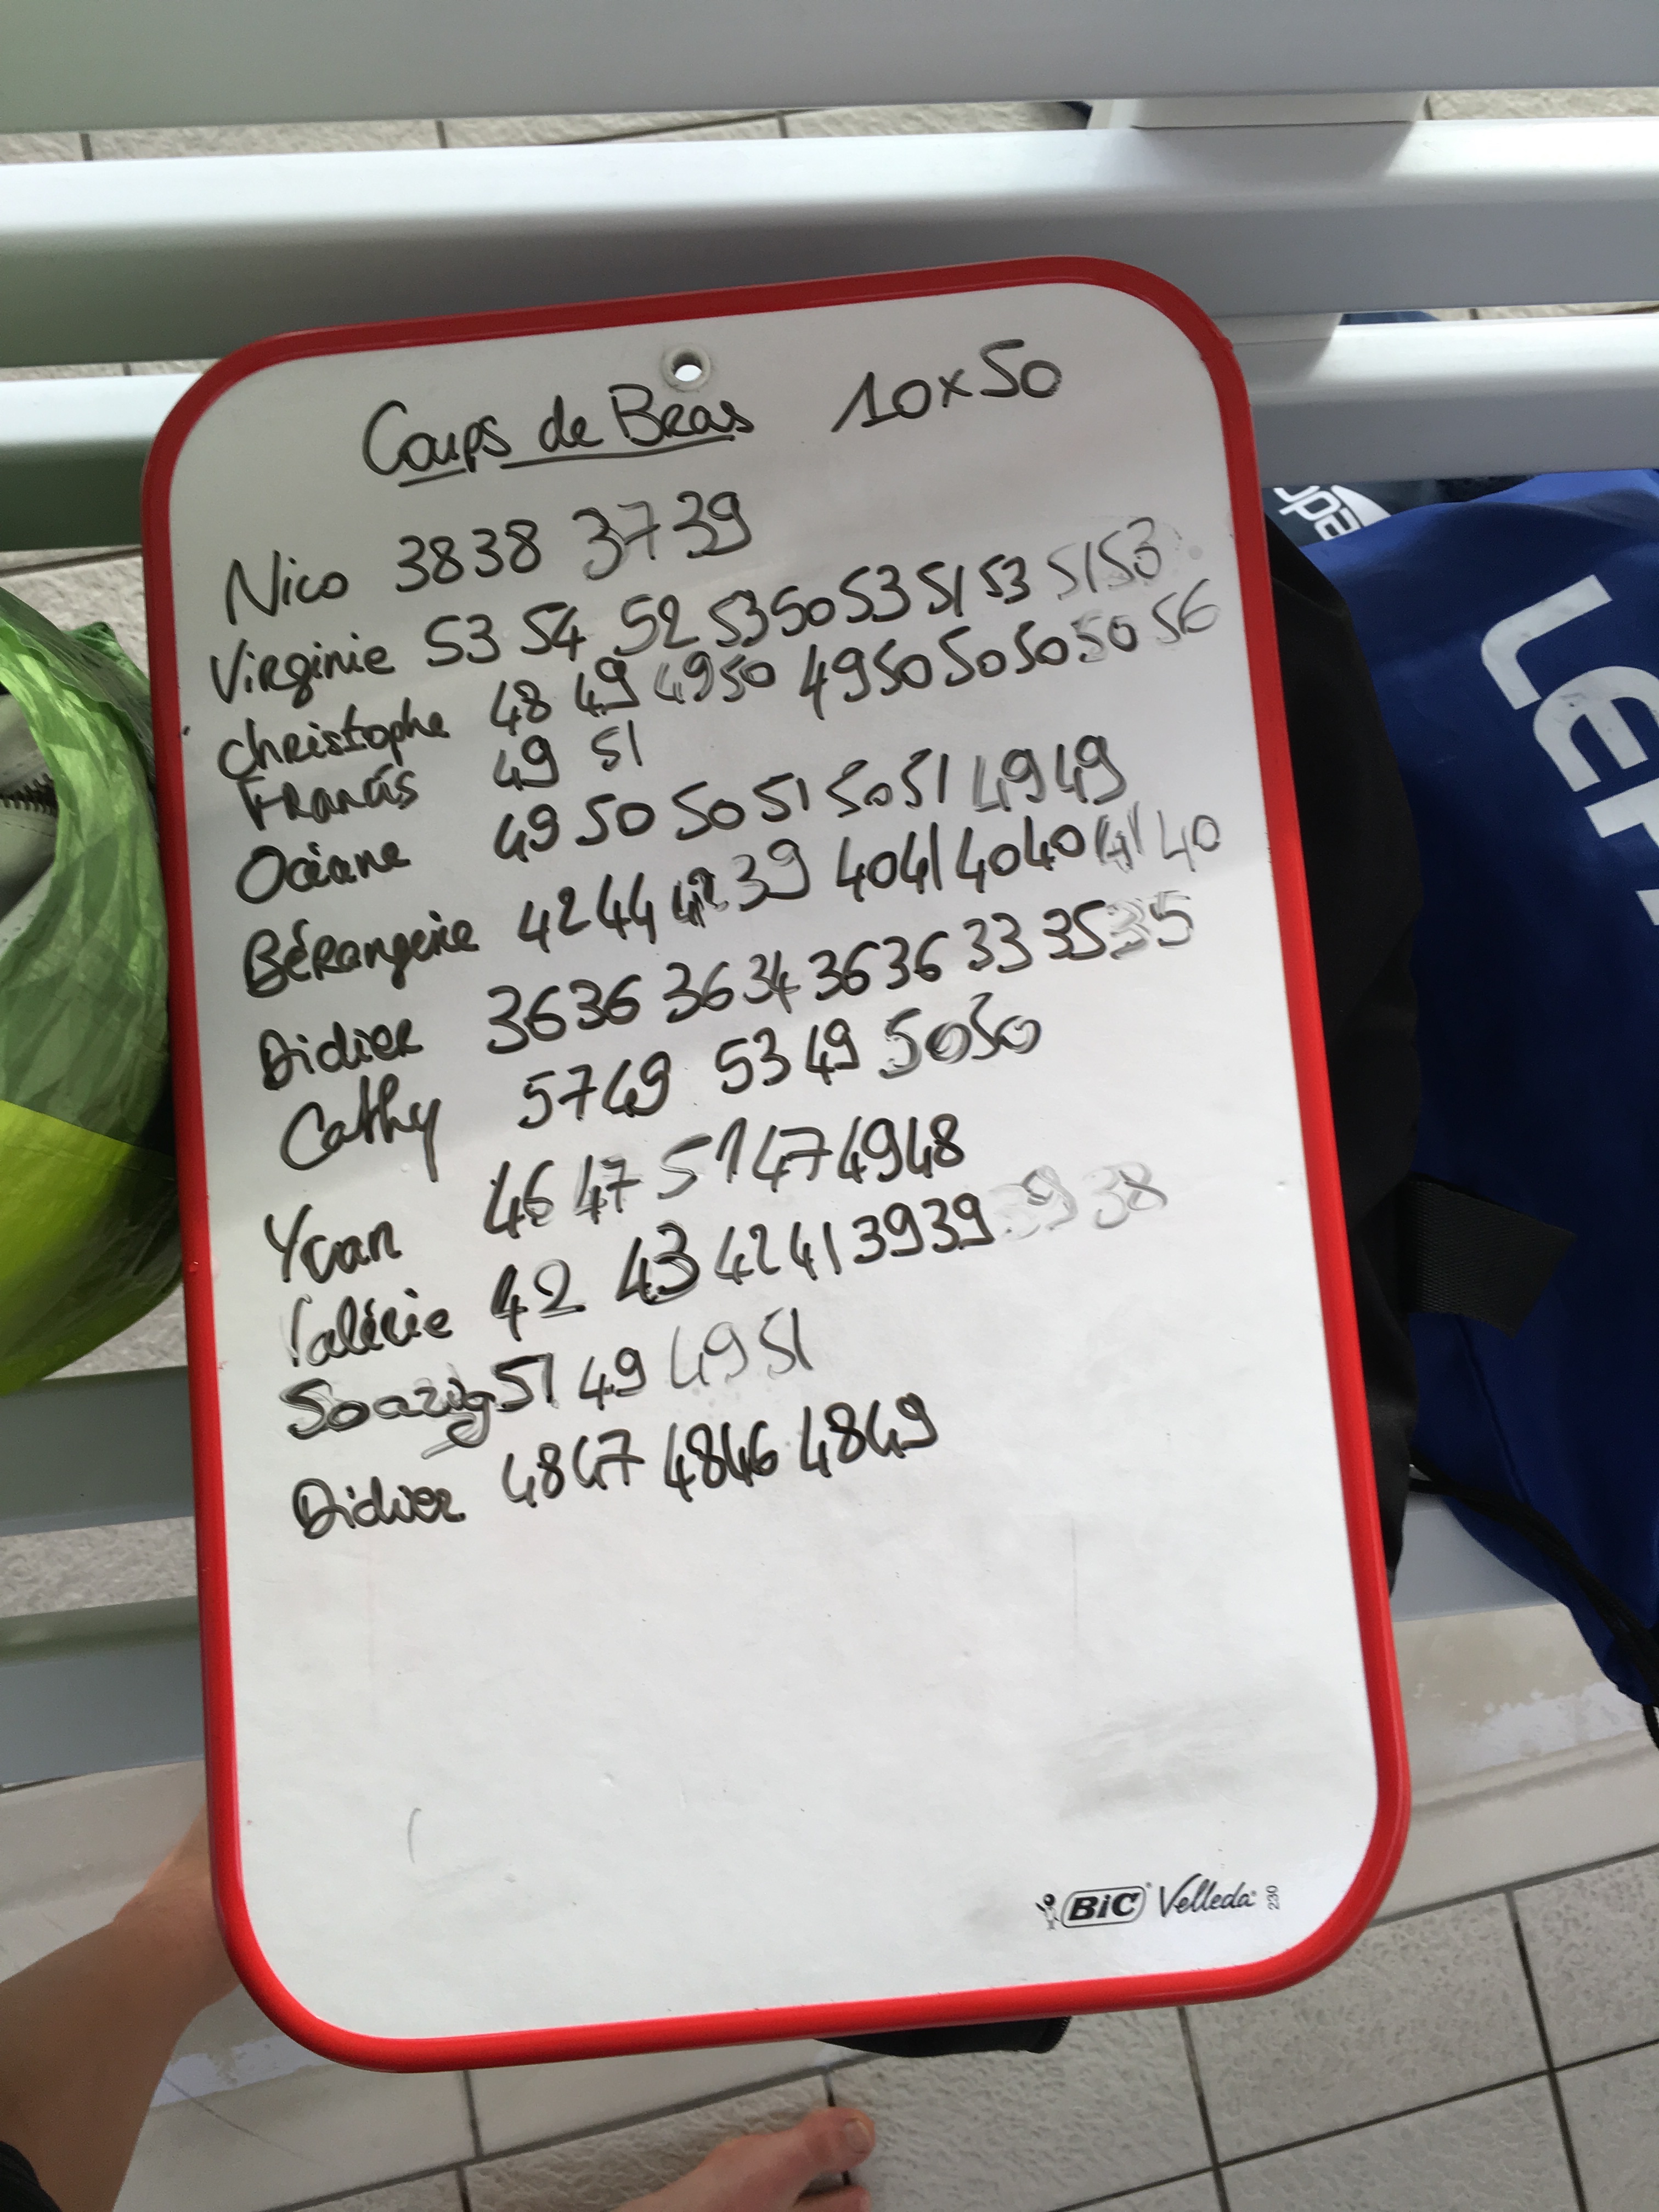 Coups de Bras 10x50
Nico 38 38 37 39
Virginie 53 54 52 53 50 53 51 53 51 53
Christophe 48 49 49 50 49 50 50 50 50 56
Francis 49 51
Océane 49 50 50 51 50 51 49 49
Bérangerie 42 44 42 39 40 41 40 40 41 40
Didier 36 36 36 34 36 36 33 35 35
Cathy 57 49 53 49 50 50
Yvan 46 47 51 47 49 48
Valérie 42 43 42 41 39 39 39 38
Soazig 51 49 49 51
Didier 48 47 48 46 48 49
BiC Velleda 230